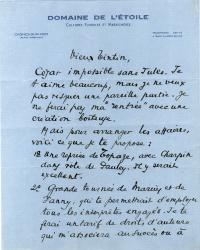 DOMAINE DE L'ÉTOILE
CULTURES FLORALES ET MARAICHÈRES
Mieux Tinton,
César impossible sans Jules. Je
t'aime beaucoup, mais je ne veux
pas risquer une pareille partie. Je
ne ferai pas ma "rentrée" avec une
création boiteuse.
Mais pour arranger les affaires,
voici ce que je te propose :
une reprise de Topaze, avec Charpin
dans rôle de Il y serait
excellent.
2° Grande tournée de Marius et de
Fanny, qui te permettrait d'employer
tous les interprètes engagés. Je te
ferai un tarif de droits d'auteurs
qui m'associera au succès ou à